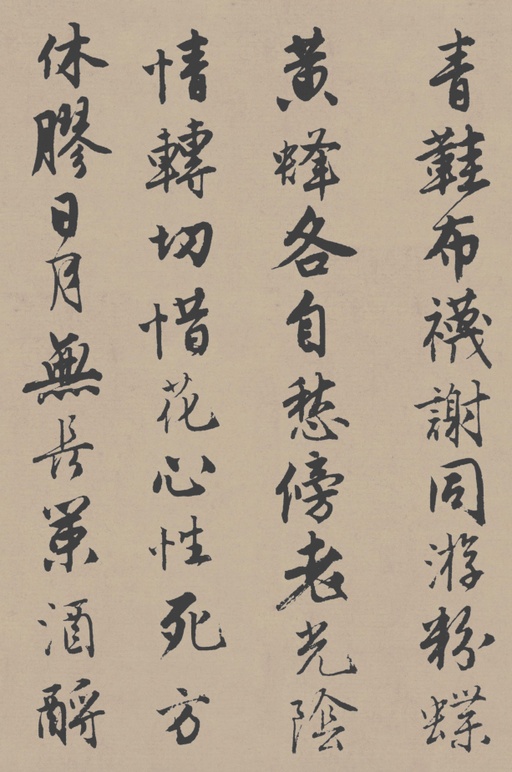 青鞋布襪謝同游粉蝶
黃蜂各自愁傍老光陰
情轉切惜花心性死方
休膠日月無長策酒酹